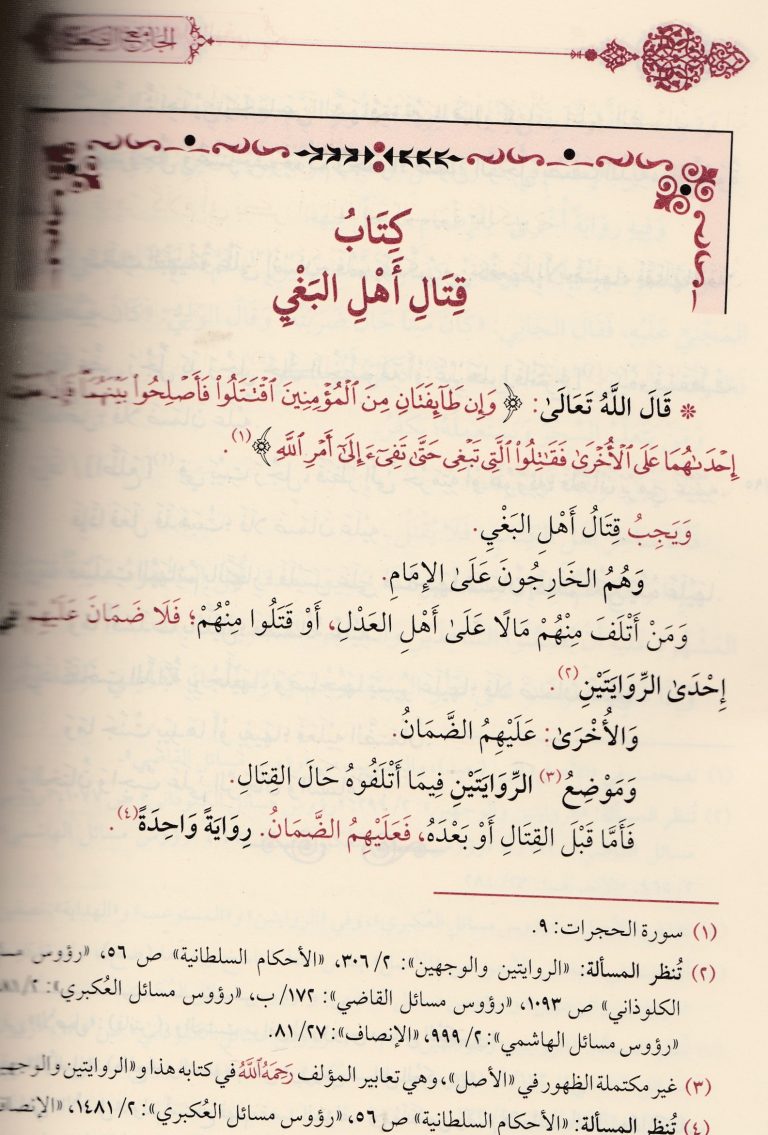 الجامع الصغير
كِتَابُ
قِتَالِ أَهْلِ البَغْيِ
* قَالَ اللَّهُ تَعَالَىٰ: ﴿وَإِن طَآئِفَتَانِ مِنَ ٱلْمُؤْمِنِينَ ٱقْتَتَلُوا۟ فَأَصْلِحُوا۟ بَيْنَهُمَا
إِحْدَىٰهُمَا عَلَى ٱلْأُخْرَىٰ فَقَـٰتِلُوا۟ ٱلَّتِى تَبْغِى حَتَّىٰ تَفِىٓءَ إِلَىٰٓ أَمْرِ ٱللَّهِ﴾(١).
وَيَجِبُ قِتَالُ أَهْلِ البَغْيِ.
وَهُمُ الخَارِجُونَ عَلَىٰ الإِمَامِ.
وَمَنْ أَتْلَفَ مِنْهُمْ مَالًا عَلَىٰ أَهْلِ العَدْلِ، أَوْ قَتَلُوا مِنْهُمْ؛ فَلَا ضَمَانَ عَلَيْهِمْ فِي
إِحْدَىٰ الرِّوَايَتَيْنِ(٢).
وَالأُخْرَىٰ: عَلَيْهِمُ الضَّمَانُ.
وَمَوْضِعُ(٣) الرِّوَايَتَيْنِ فِيمَا أَتْلَفُوهُ حَالَ القِتَالِ.
فَأَمَّا قَبْلَ القِتَالِ أَوْ بَعْدَهُ، فَعَلَيْهِمُ الضَّمَانُ. رِوَايَةً وَاحِدَةً(٤).
(١) سورة الحجرات: ٩.
(٢) تُنظر المسألة: «الروايتين والوجهين»: ٢/ ٣٠٦، «الأحكام السلطانية» ص ٥٦، «رؤوس
الكلوذاني» ص ١٠٩٣، «رؤوس مسائل القاضي»: ١٧٢/ ب، «رؤوس مسائل العُكبري»: ٢/
«رؤوس مسائل الهاشمي»: ٢/ ٩٩٩، «الإنصاف»: ٢٧/ ٨١.
(٣) غير مكتملة الظهور في «الأصل»، وهي تعابير المؤلف رَحِمَهُ ٱللَّهُ في كتابه هذا و«الروايتين
(٤) تُنظر المسألة: «الأحكام السلطانية» ص ٥٦، «رؤوس مسائل العُكبري»: ٢/ ١٤٨١،